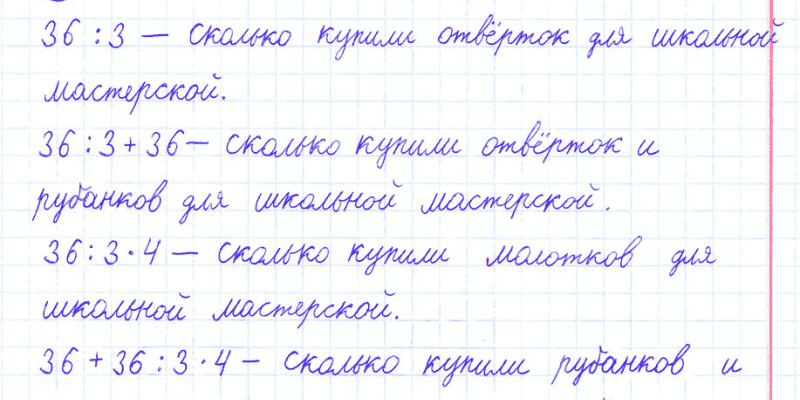 36 : 3 — сколько купили отвёрток для школьной
мастерской.
36 : 3 + 36 — сколько купили отвёрток и
рубанков для школьной мастерской.
36 : 3 · 4 — сколько купили молотков для
школьной мастерской.
36 + 36 : 3 · 4 — сколько купили рубанков и